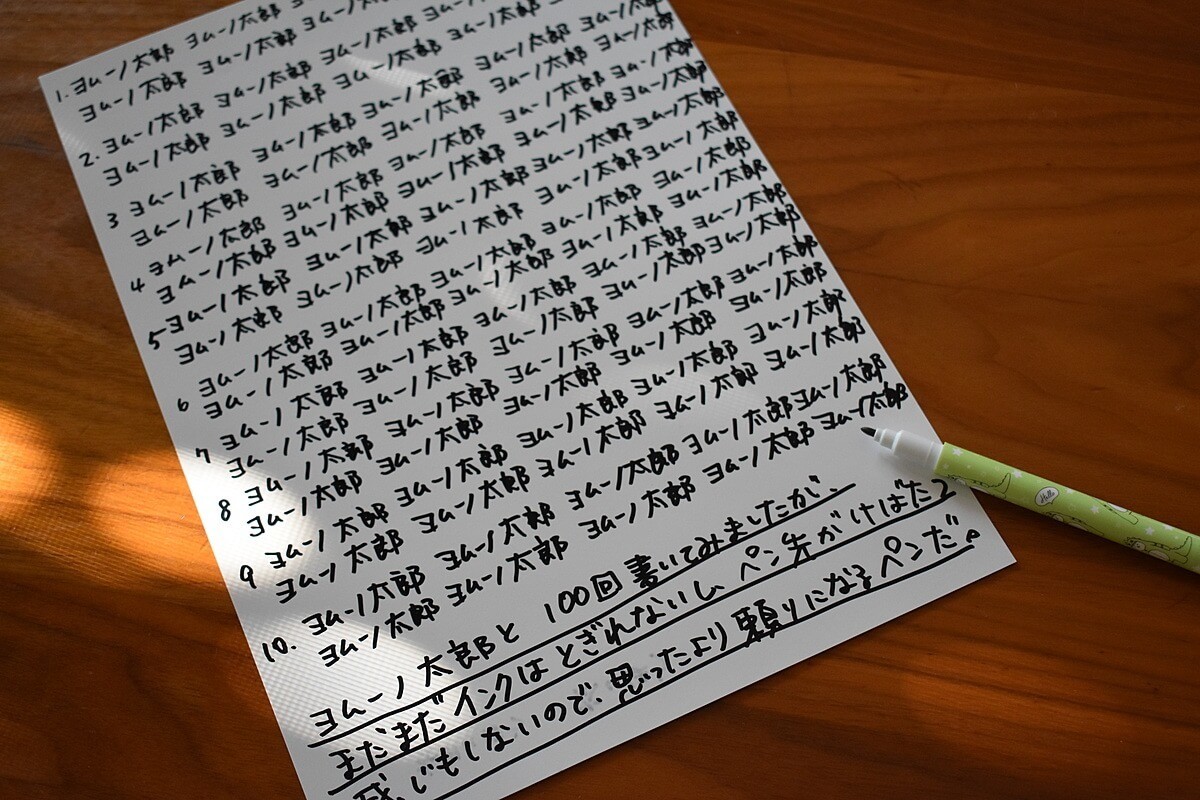 1. ヨムーノ太郎 ヨムーノ太郎
ヨムーノ太郎 ヨムーノ太郎 ヨムーノ太郎
2. ヨムーノ太郎 ヨムーノ太郎 ヨムーノ太郎 ヨムーノ太郎
ヨムーノ太郎 ヨムーノ太郎 ヨムーノ太郎 ヨムーノ太郎 ヨムーノ太郎
3 ヨムーノ太郎 ヨムーノ太郎 ヨムーノ太郎 ヨムーノ太郎 ヨムーノ太郎
ヨムーノ太郎 ヨムーノ太郎 ヨムーノ太郎 ヨムーノ太郎 ヨムーノ太郎
4 ヨムーノ太郎 ヨムーノ太郎 ヨムーノ太郎 ヨムーノ太郎 ヨムーノ太郎
ヨムーノ太郎 ヨムーノ太郎 ヨムーノ太郎 ヨムーノ太郎 ヨムーノ太郎
5 ヨムーノ太郎 ヨムーノ太郎 ヨムーノ太郎 ヨムーノ太郎 ヨムーノ太郎
ヨムーノ太郎 ヨムーノ太郎 ヨムーノ太郎 ヨムーノ太郎 ヨムーノ太郎
6 ヨムーノ太郎 ヨムーノ太郎 ヨムーノ太郎 ヨムーノ太郎 ヨムーノ太郎
ヨムーノ太郎 ヨムーノ太郎 ヨムーノ太郎 ヨムーノ太郎 ヨムーノ太郎
7 ヨムーノ太郎 ヨムーノ太郎 ヨムーノ太郎 ヨムーノ太郎 ヨムーノ太郎
ヨムーノ太郎 ヨムーノ太郎 ヨムーノ太郎 ヨムーノ太郎 ヨムーノ太郎
8 ヨムーノ太郎 ヨムーノ太郎 ヨムーノ太郎 ヨムーノ太郎 ヨムーノ太郎
ヨムーノ太郎 ヨムーノ太郎 ヨムーノ太郎 ヨムーノ太郎 ヨムーノ太郎
9 ヨムーノ太郎 ヨムーノ太郎 ヨムーノ太郎 ヨムーノ太郎 ヨムーノ太郎
ヨムーノ太郎 ヨムーノ太郎 ヨムーノ太郎 ヨムーノ太郎 ヨムーノ太郎
10. ヨムーノ太郎 ヨムーノ太郎 ヨムーノ太郎 ヨムーノ太郎 ヨムーノ太郎
ヨムーノ太郎 ヨムーノ太郎 ヨムーノ太郎 ヨムーノ太郎 ヨムーノ太郎
ヨムーノ太郎と 100回書いてみましたが、
まだまだインクはとぎれないし、ペン先がけばだつ
感じもしないので、思ったより頼りになるペンだ。
Hello